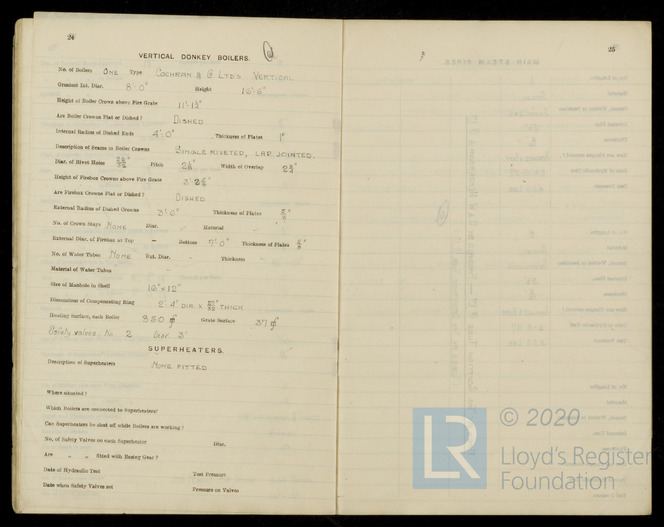 24
VERTICAL DONKEY BOILERS.
No. of Boilers ONE Type COCHRAN & Co LTD'S VERTICAL
Greatest Int. Diar. 8'. 0" Height 16'. 6"
Height of Boiler Crown above Fire Grate 11'. 1½"
Are Boiler Crowns Flat or Dished? DISHED
Internal Radius of Dished Ends 4'. 0" Thickness of Plates 1"
Description of Seams in Boiler Crowns SINGLE RIVETED, LAP JOINTED.
Diar. of Rivet Holes Pitch Width of Overlap
Height of Firebox Crowns above Fire Grate
Are Firebox Crowns Flat or Dished? DISHED
External Radius of Dished Crowns 3'. 6" Thickness of Plates
No. of Crown Stays NONE Diar. - Material -
External Diar. of Firebox at Top - Bottom 7'. 0" Thickness of Plates
No. of Water Tubes NONE Ext. Diar. - Thickness -
Material of Water Tubes -
Size of Manhole in Shell 16" × 12"
Dimensions of Compensating Ring 2'. 4" DIA. × THICK
Heating Surface, each Boiler 880 Grate Surface 37
Safety valves, No. 2 Diar. 3"
SUPERHEATERS.
Description of Superheaters NONE FITTED
Where situated?
Which Boilers are connected to Superheaters?
Can Superheaters be shut off while Boilers are working?
No. of Safety Valves on each Superheater Diar.
Are " " fitted with Easing Gear?
Date of Hydraulic Test Test Pressure
Date when Safety Valves set Pressure on Valves
25
LR
© 2020
Lloyd's Register
Foundation